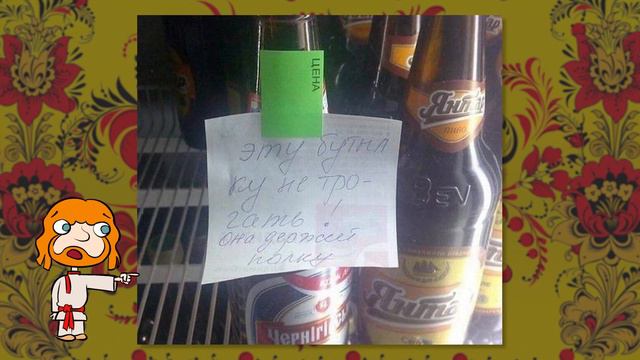 ЦЕНА
эту бутыл
ку не тро-
гать!
она держит
полку
Янтар
ПИВО
BSV
Янтар
Чернігі